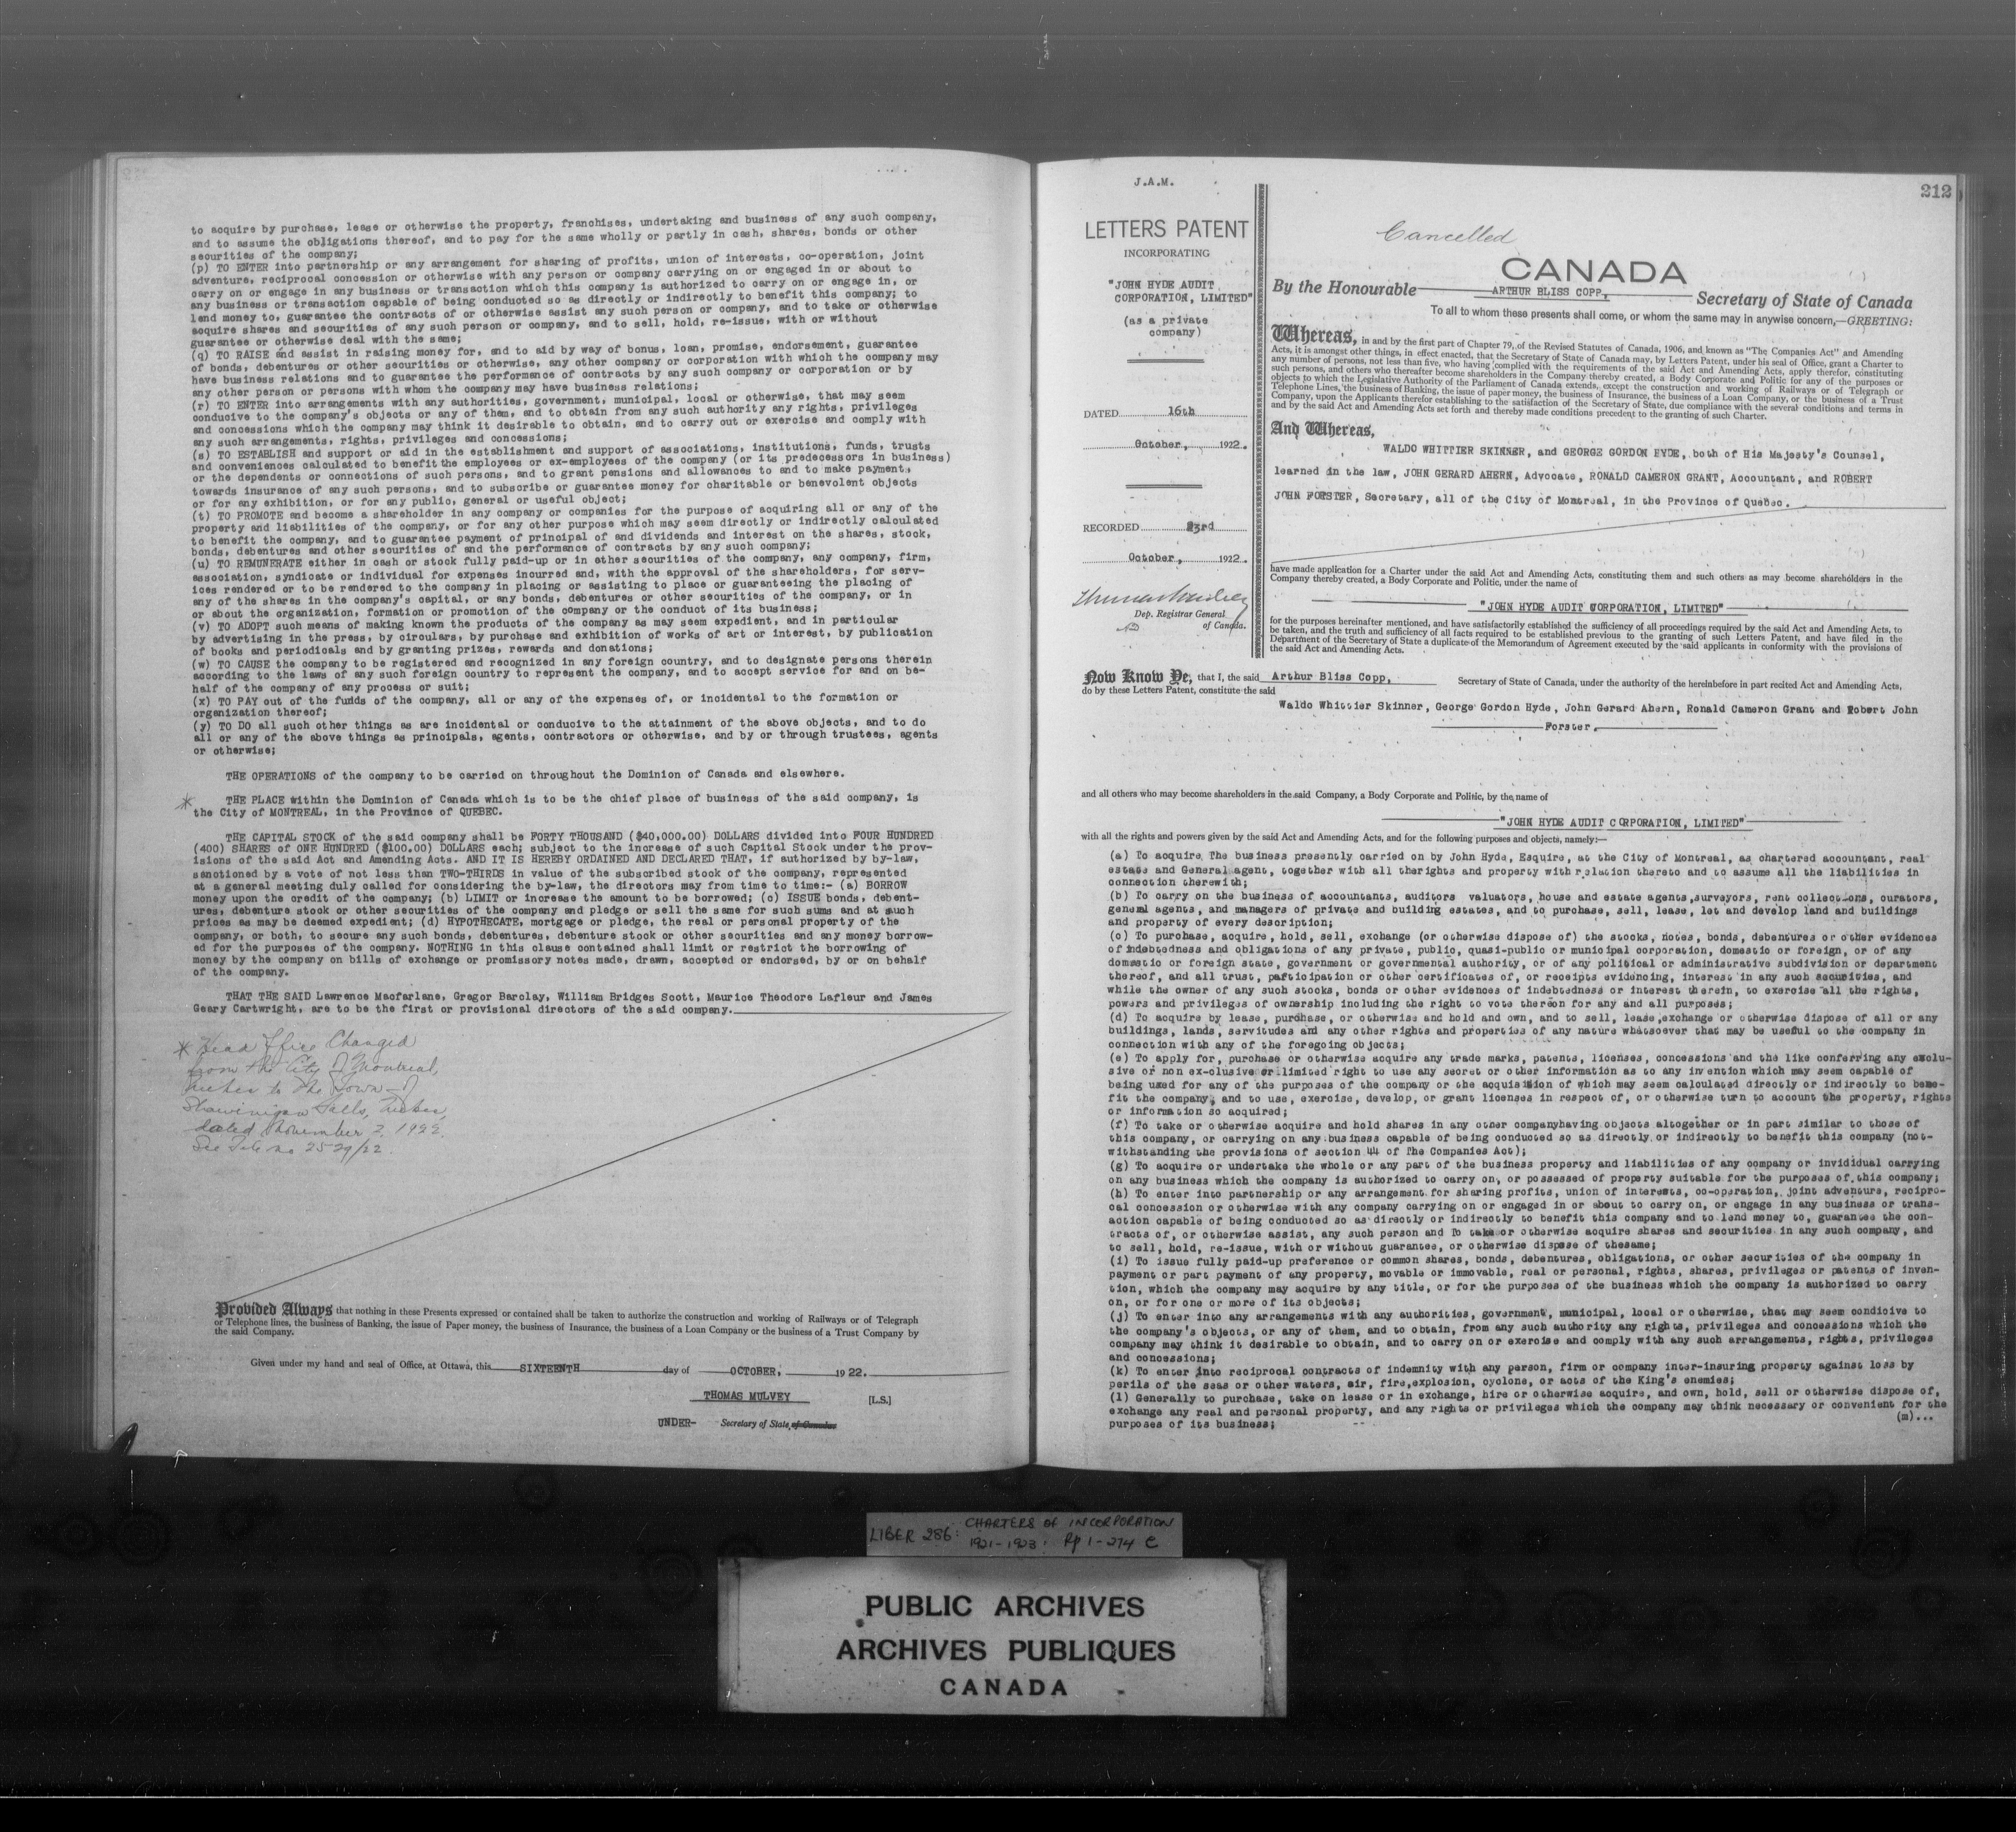 to acquire by purchase, lease or otherwise the property, franchises, undertaking and business of any such company,
and to assume the obligations thereof, and to pay for the same wholly or partly in cash, shares, bonds or other
securities of the company;
(p) TO ENTER into partnership or any arrangement for sharing of profits, union of interests, co-operation, joint
adventure, reciprocal concession or otherwise with any person or company carrying on or engaged in or about to
carry on or engage in any business or transaction which this company is authorized to carry on or engage in, or
any business or transaction capable of being conducted so as directly or indirectly to benefit this company; to
lend money to, guarantee the contracts of or otherwise assist any such person or company, and to take or otherwise
acquire shares and securities of any such person or company, and to sell, hold, re-issue, with or without
guarantee or otherwise deal with the same;
(q) TO RAISE and assist in raising money for, and to aid by way of bonus, loan, promise, endorsement, guarantee
of bonds, debentures or other securities or otherwise, any other company or corporation with which the company may
have business relations and to guarantee the performance of contracts by any such company or corporation or by
any other person or persons with whom the company may have business relations;
(r) TO ENTER into arrangements with any authorities, government, municipal, local or otherwise, that may seem
conducive to the company's objects or any of them, and to obtain from any such authority any rights, privileges
and concessions which the company may think it desirable to obtain, and to carry out or exercise and comply with
any such arrangements, rights, privileges and concessions;
(s) TO ESTABLISH and support or aid in the establishment and support of associations, institutions, funds, trusts
and conveniences calculated to benefit the employees or ex-employees of the company (or its predecessors in business)
or the dependents or connections of such persons, and to grant pensions and allowances to and to make payment,
towards insurance of any such persons, and to subscribe or guarantee money for charitable or benevolent objects
or for any exhibition, or for any public, general or useful object;
(t) TO PROMOTE and become a shareholder in any company or companies for the purpose of acquiring all or any of the
property and liabilities of the company, or for any other purpose which may seem directly or indirectly calculated
to benefit the company, and to guarantee payment of principal of and dividends and interest on the shares, stock,
bonds, debentures and other securities of and the performance of contracts by any such company;
(u) TO REMUNERATE either in cash or stock fully paid-up or in other securities of the company, any company, firm,
association, syndicate or individual for expenses incurred and, with the approval of the shareholders, for serv-
ices rendered or to be rendered to the company in placing or assisting to place or guaranteeing the placing of
any of the shares in the company's capital, or any bonds, debentures or other securities of the company, or in
or about the organization, formation or promotion of the company or the conduct of its business;
(v) TO ADOPT such means of making known the products of the company as may seem expedient, and in particular
by advertising in the press, by circulars, by purchase and exhibition of works of art or interest, by publication
of books and periodicals and by granting prizes, rewards and donations;
(w) TO CAUSE the company to be registered and recognized in any foreign country, and to designate persons therein
according to the laws of any such foreign country to represent the company, and to accept service for and on be-
half of the company of any process or suit;
(x) TO PAY out of the funds of the company, all or any of the expenses of, or incidental to the formation or
organization thereof;
(y) TO DO all such other things as are incidental or conducive to the attainment of the above objects, and to do
all or any of the above things as principals, agents, contractors or otherwise, and by or through trustees, agents
or otherwise;
THE OPERATIONS of the company to be carried on throughout the Dominion of Canada and elsewhere.
* THE PLACE within the Dominion of Canada which is to be the chief place of business of the said company, is
the City of MONTREAL, in the Province of QUEBEC.
THE CAPITAL STOCK of the said company shall be FORTY THOUSAND ($40,000.00) DOLLARS divided into FOUR HUNDRED
(400) SHARES of ONE HUNDRED ($100.00) DOLLARS each; subject to the increase of such Capital Stock under the prov-
isions of the said Act and Amending Acts. AND IT IS HEREBY ORDAINED AND DECLARED THAT, if authorized by by-law,
sanctioned by a vote of not less than TWO-THIRDS in value of the subscribed stock of the company, represented
at a general meeting duly called for considering the by-law, the directors may from time to time:- (a) BORROW
money upon the credit of the company; (b) LIMIT or increase the amount to be borrowed; (c) ISSUE bonds, debent-
ures, debenture stock or other securities of the company and pledge or sell the same for such sums and at such
prices as may be deemed expedient; (d) HYPOTHECATE, mortgage or pledge, the real or personal property of the
company, or both, to secure any such bonds, debentures, debenture stock or other securities and any money borrow-
ed for the purposes of the company. NOTHING in this clause contained shall limit or restrict the borrowing of
money by the company on bills of exchange or promissory notes made, drawn, accepted or endorsed, by or on behalf
of the company.
THAT THE SAID Lawrence Macfarlane, Gregor Barclay, William Bridges Scott, Maurice Theodore Lafleur and James
Geary Cartwright, are to be the first or provisional directors of the said company.
* Head Office Changed
from the City of Montreal,
Quebec to the Town of
Shawinigan Falls, Quebec,
dated November 2, 1922.
See File no 25-29/22.
Provided Always that nothing in these Presents expressed or contained shall be taken to authorize the construction and working of Railways or of Telegraph
or Telephone lines, the business of Banking, the issue of Paper money, the business of Insurance, the business of a Loan Company or the business of a Trust Company by
the said Company.
Given under my hand and seal of Office, at Ottawa, this SIXTEENTH day of OCTOBER, 1922.
THOMAS MULVEY [L.S.]
UNDER- Secretary of State of Canada
J.A.M.
212
LETTERS PATENT
INCORPORATING
"JOHN HYDE AUDIT
CORPORATION, LIMITED"
(as a private
company)
DATED 16th
October, 1922.
RECORDED 23rd
October, 1922.
Thomas Mulvey
Dep. Registrar General
of Canada.
Cancelled
CANADA
By the Honourable ARTHUR BLISS COPP, Secretary of State of Canada
To all to whom these presents shall come, or whom the same may in anywise concern,—GREETING:
Whereas, in and by the first part of Chapter 79, of the Revised Statutes of Canada, 1906, and known as "The Companies Act" and Amending
Acts, it is amongst other things, in effect enacted, that the Secretary of State of Canada may, by Letters Patent, under his seal of Office, grant a Charter to
any number of persons, not less than five, who having complied with the requirements of the said Act and Amending Acts, apply therefor, constituting
such persons, and others who thereafter become shareholders in the Company thereby created, a Body Corporate and Politic for any of the purposes or
objects to which the Legislative Authority of the Parliament of Canada extends, except the construction and working of Railways or of Telegraph or
Telephone Lines, the business of Banking, the issue of paper money, the business of Insurance, the business of a Loan Company, or the business of a Trust
Company, upon the Applicants therefor establishing to the satisfaction of the Secretary of State, due compliance with the several conditions and terms in
and by the said Act and Amending Acts set forth and thereby made conditions precedent to the granting of such Charter.
And Whereas,
WALDO WHITTIER SKINNER, and GEORGE GORDON HYDE, both of His Majesty's Counsel,
learned in the law, JOHN GERARD AHERN, Advocate, RONALD CAMERON GRANT, Accountant, and ROBERT
JOHN FORSTER, Secretary, all of the City of Montreal, in the Province of Quebec.
have made application for a Charter under the said Act and Amending Acts, constituting them and such others as may become shareholders in the
Company thereby created, a Body Corporate and Politic, under the name of
"JOHN HYDE AUDIT CORPORATION, LIMITED"
for the purposes hereinafter mentioned, and have satisfactorily established the sufficiency of all proceedings required by the said Act and Amending Acts, to
be taken, and the truth and sufficiency of all facts required to be established previous to the granting of such Letters Patent, and have filed in the
Department of the Secretary of State a duplicate of the Memorandum of Agreement executed by the said applicants in conformity with the provisions of
the said Act and Amending Acts.
Now Know Ye, that I, the said Arthur Bliss Copp, Secretary of State of Canada, under the authority of the hereinbefore in part recited Act and Amending Acts,
do by these Letters Patent, constitute the said
Waldo Whittier Skinner, George Gordon Hyde, John Gerard Ahern, Ronald Cameron Grant and Robert John
Forster.
and all others who may become shareholders in the said Company, a Body Corporate and Politic, by the name of
"JOHN HYDE AUDIT CORPORATION, LIMITED"
with all the rights and powers given by the said Act and Amending Acts, and for the following purposes and objects, namely:—
(a) To acquire The business presently carried on by John Hyde, Esquire, at the City of Montreal, as chartered accountant, real
estate and General agent, together with all therights and property with relation thereto and to assume all the liabilities in
connection therewith;
(b) To carry on the business of accountants, auditors valuators, house and estate agents,surveyors, rent collections, curators,
general agents, and managers of private and building estates, and to purchase, sell, lease, let and develop land and buildings
and property of every description;
(c) To purchase, acquire, hold, sell, exchange (or otherwise dispose of) the stocks, notes, bonds, debentures or other evidences
of indebtedness and obligations of any private, public, quasi-public or municipal corporation, domestic or foreign, or of any
domestic or foreign state, government or governmental authority, or of any political or administrative subdivision or department
thereof, and all trust, participation or other certificates of, or receipts evidencing, interest in any such securities, and
while the owner of any such stocks, bonds or other evidences of indebtedness or interest therein, to exercise all the rights,
powers and privileges of ownership including the right to vote thereon for any and all purposes;
(d) To acquire by lease, purchase, or otherwise and hold and own, and to sell, lease,exchange or otherwise dispose of all or any
buildings, lands, servitudes and any other rights and properties of any nature whatsoever that may be useful to the company in
connection with any of the foregoing objects;
(e) To apply for, purchase or otherwise acquire any trade marks, patents, licenses, concessions and the like conferring any exclu-
sive or non ex-clusive or limited right to use any secret or other information as to any invention which may seem capable of
being used for any of the purposes of the company or the acquisition of which may seem calculated directly or indirectly to bene-
fit the company, and to use, exercise, develop, or grant licenses in respect of, or otherwise turn to account the property, rights
or information so acquired;
(f) To take or otherwise acquire and hold shares in any other companyhaving objects altogether or in part similar to those of
this company, or carrying on any business capable of being conducted so as directly or indirectly to benefit this company (not-
withstanding the provisions of section 44 of The Companies Act);
(g) To acquire or undertake the whole or any part of the business property and liabilities of any company or invididual carrying
on any business which the company is authorized to carry on, or possessed of property suitable for the purposes of this company;
(h) To enter into partnership or any arrangement for sharing profits, union of interests, co-operation, joint adventure, recipro-
cal concession or otherwise with any company carrying on or engaged in or about to carry on, or engage in any business or trans-
action capable of being conducted so as directly or indirectly to benefit this company and to lend money to, guarantee the con-
tracts of, or otherwise assist, any such person and To take or otherwise acquire shares and securities in any such company, and
to sell, hold, re-issue, with or without guarantee, or otherwise dispose of thesame;
(i) To issue fully paid-up preference or common shares, bonds, debentures, obligations, or other securities of the company in
payment or part payment of any property, movable or immovable, real or personal, rights, shares, privileges or patents of inven-
tion, which the company may acquire by any title, or for the purposes of the business which the company is authorized to carry
on, or for one or more of its objects;
(j) To enter into any arrangements with any authorities, government, municipal, local or otherwise, that may seem condicive to
the company's objects, or any of them, and to obtain, from any such authority any rights, privileges and concessions which the
company may think it desirable to obtain, and to carry on or exercise and comply with any such arrangements, rights, privileges
and concessions;
(k) To enter into reciprocal contracts of indemnity with any person, firm or company inter-insuring property against loss by
perils of the seas or other waters, air, fire,explosion, cyclone, or acts of the King's enemies;
(l) Generally to purchase, take on lease or in exchange, hire or otherwise acquire, and own, hold, sell or otherwise dispose of,
exchange any real and personal property, and any rights or privileges which the company may think necessary or convenient for the
purposes of its business;
(m)...
LIBER 286: CHARTERS OF INCORPORATION
1921-1923: Pp 1-274 C
PUBLIC ARCHIVES
ARCHIVES PUBLIQUES
CANADA